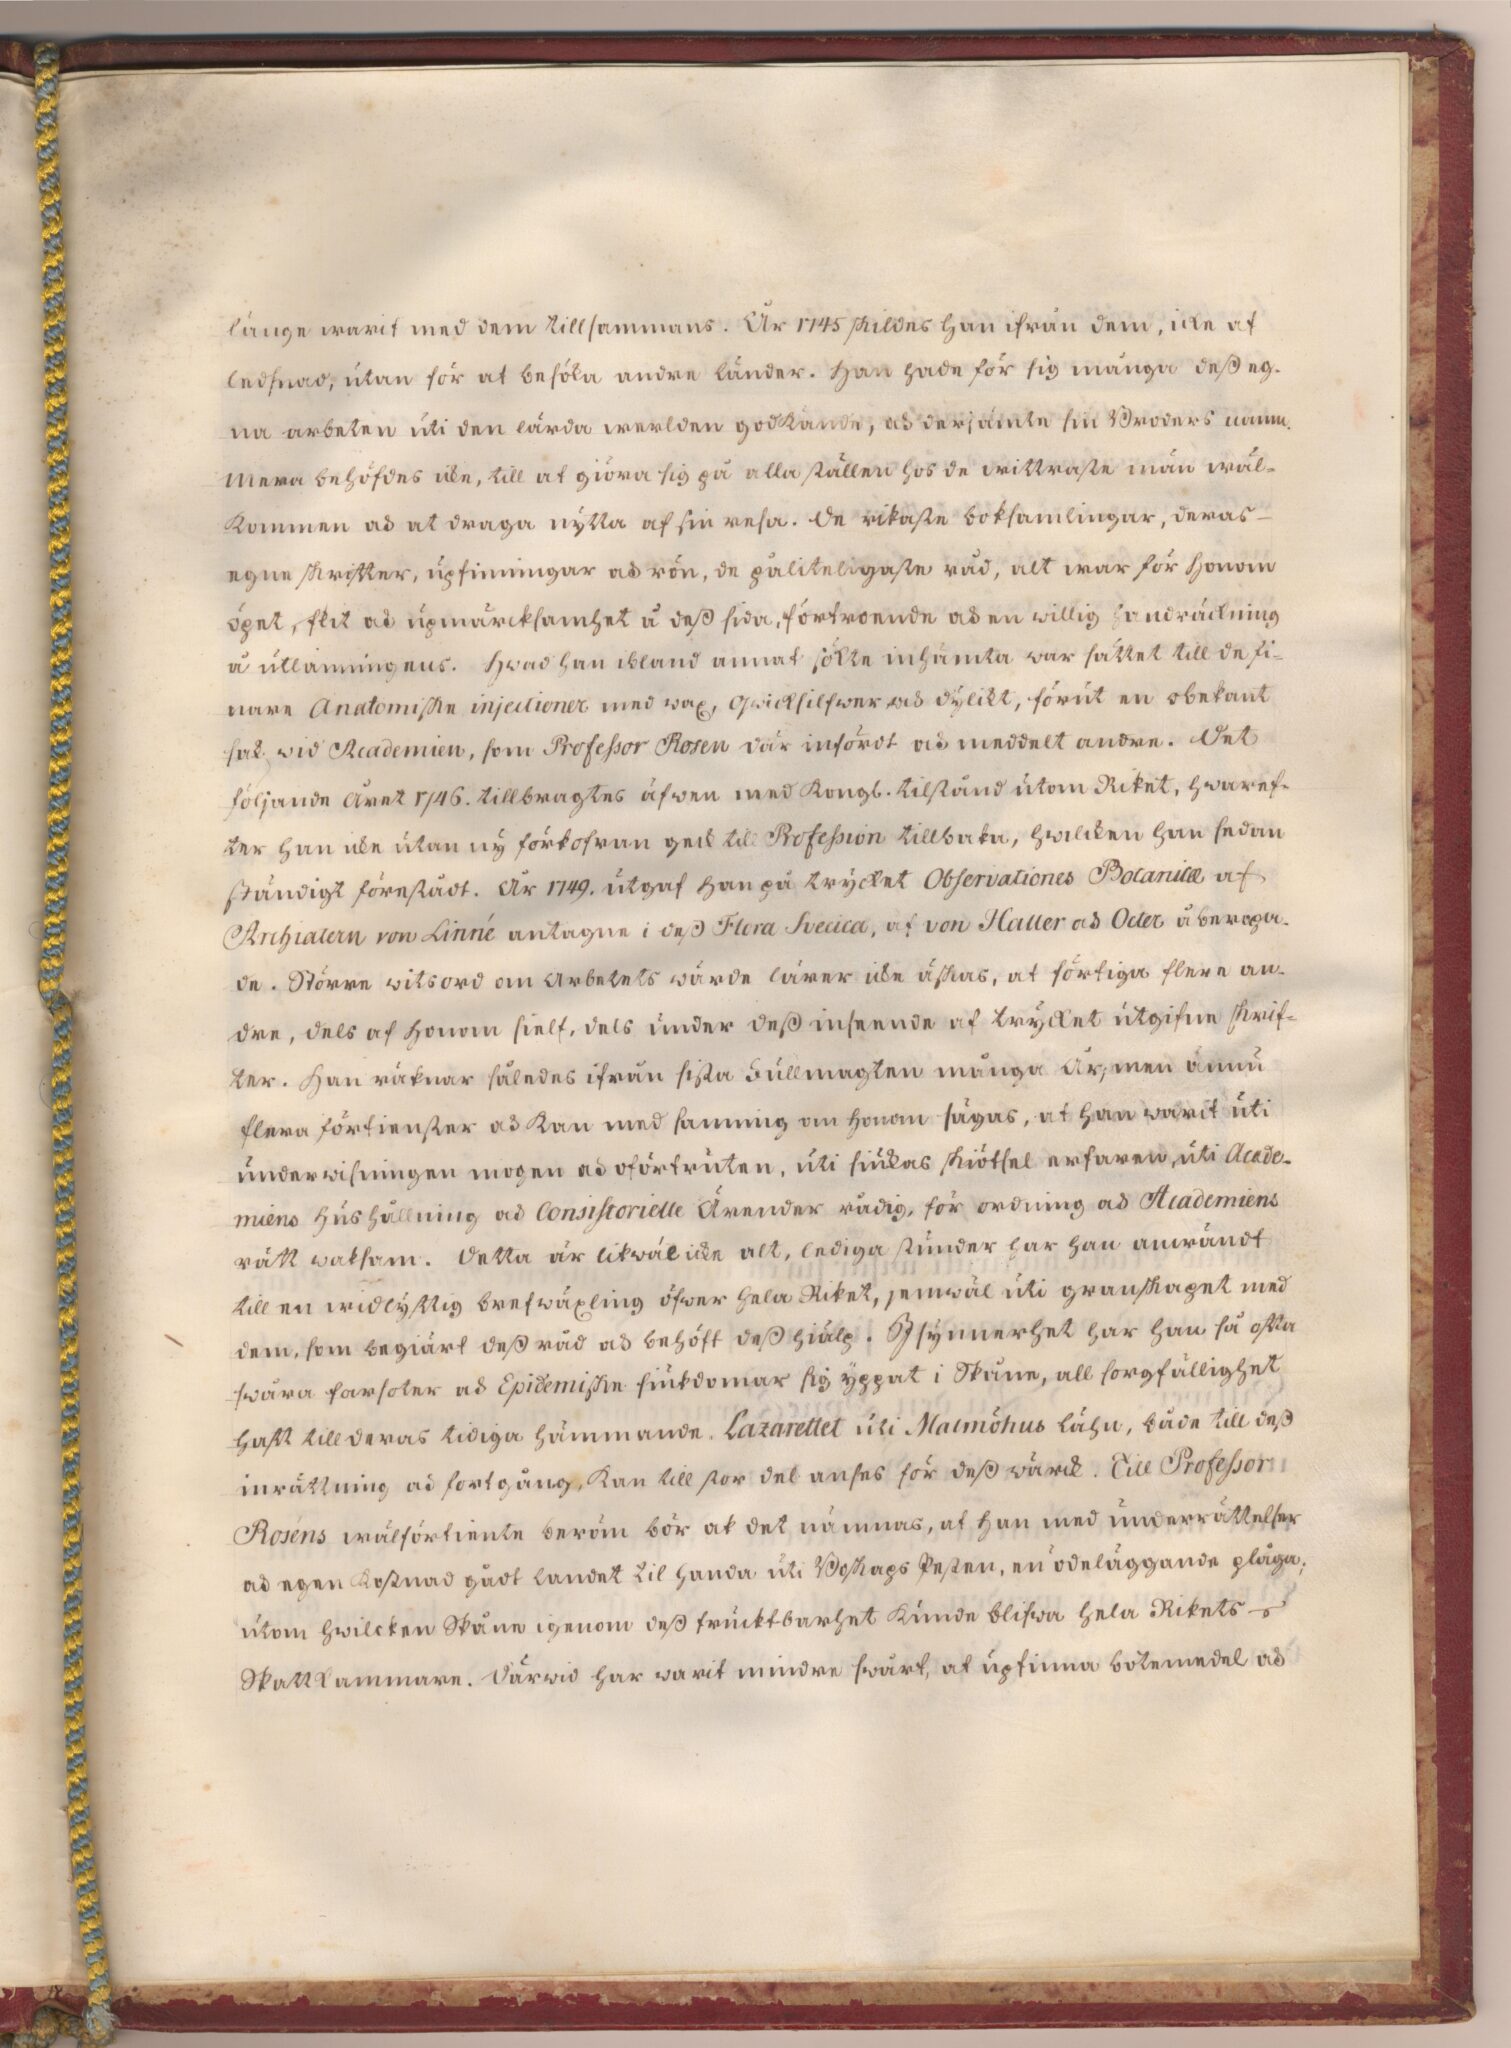 länge warit med dem tillsammans. År 1745 skildes han ifrån dem, icke af
ledsnad, utan för at besöka andre länder. Han hade för sig många deß eg-
na arbeten uti den lärda werlden godkände, och derjämte sin Broders namn.
Mera behöfdes icke, till at giöra sig på alla ställen hos de wittraste män wäl-
kommen och at draga nytta af sin resa. De rikaste boksamlingar, deras
egne skrifter, upfinningar och rön, de påliteligaste råd, alt war för Honom
öpet, flit och upmärcksamhet å deß sida, förtroende och en willig handräckning
å utlänningens. Hwad han ibland annat sökte inhämta war sättet till de fi-
nare Anatomiske injectioner med wax, qwicksilfwer och dylikt, förut en obekant
sak wid Academien, som Professor Rosen där infördt och meddelt andre. Det
följande Året 1746. tillbragtes äfwen med Kongl. tilstånd utom Riket, hwaref-
ter han icke utan ny förkofran geck till Profession tillbaka, hwilcken han sedan
ständigt förestådt. År 1749. utgaf Han på trycket Observationes Botanicæ af
Archiatern von Linné antagne i deß Flora Svecica, af von Haller och Oeder åberopa-
de. Större witsord om Arbetets wärde lärer icke äskas, at förtiga flere an-
dre, dels af Honom sielf, dels under deß inseende af trycket utgifne skrif-
ter. Han räknar således ifrån sista Fullmagten många År, men ännu
flera förtienster och kan med sanning om Honom sägas, at han warit uti
underwisningen mogen och oförtruten, uti siukas skiötsel erfaren, uti Acade-
miens Hushållning och Consistorielle Ärender rådig, för ordning och Academiens
rätt waksam. Detta är likwäl icke alt, lediga stunder har han anwändt
till en widlyftig brefwäxling öfwer hela Riket, jemwäl uti granskapet med
dem, som begiärt deß råd och behöft deß hiälp. Isynnerhet har han så ofta
swåra farsoter och Epidemiske siukdomar sig yppat i Skåne, all sorgfällighet
haft till deras tidiga hämmande. Lazarettet uti Malmöhus Lähn, både till deß
inrättning och fortgång, kan till stor del anses för deß wärck. Till Professor
Roséns wälförtiente beröm bör ock det nämnas, at Han med underrättelser
och egen kostnad gådt landet til handa uti Boskaps Pesten, en ödeläggande plåga,
utom hwilcken Skåne igenom deß fruktbarhet kunde blifwa hela Rikets
Skattkammare. Därwid har warit mindre swårt, at upfinna botemedel och